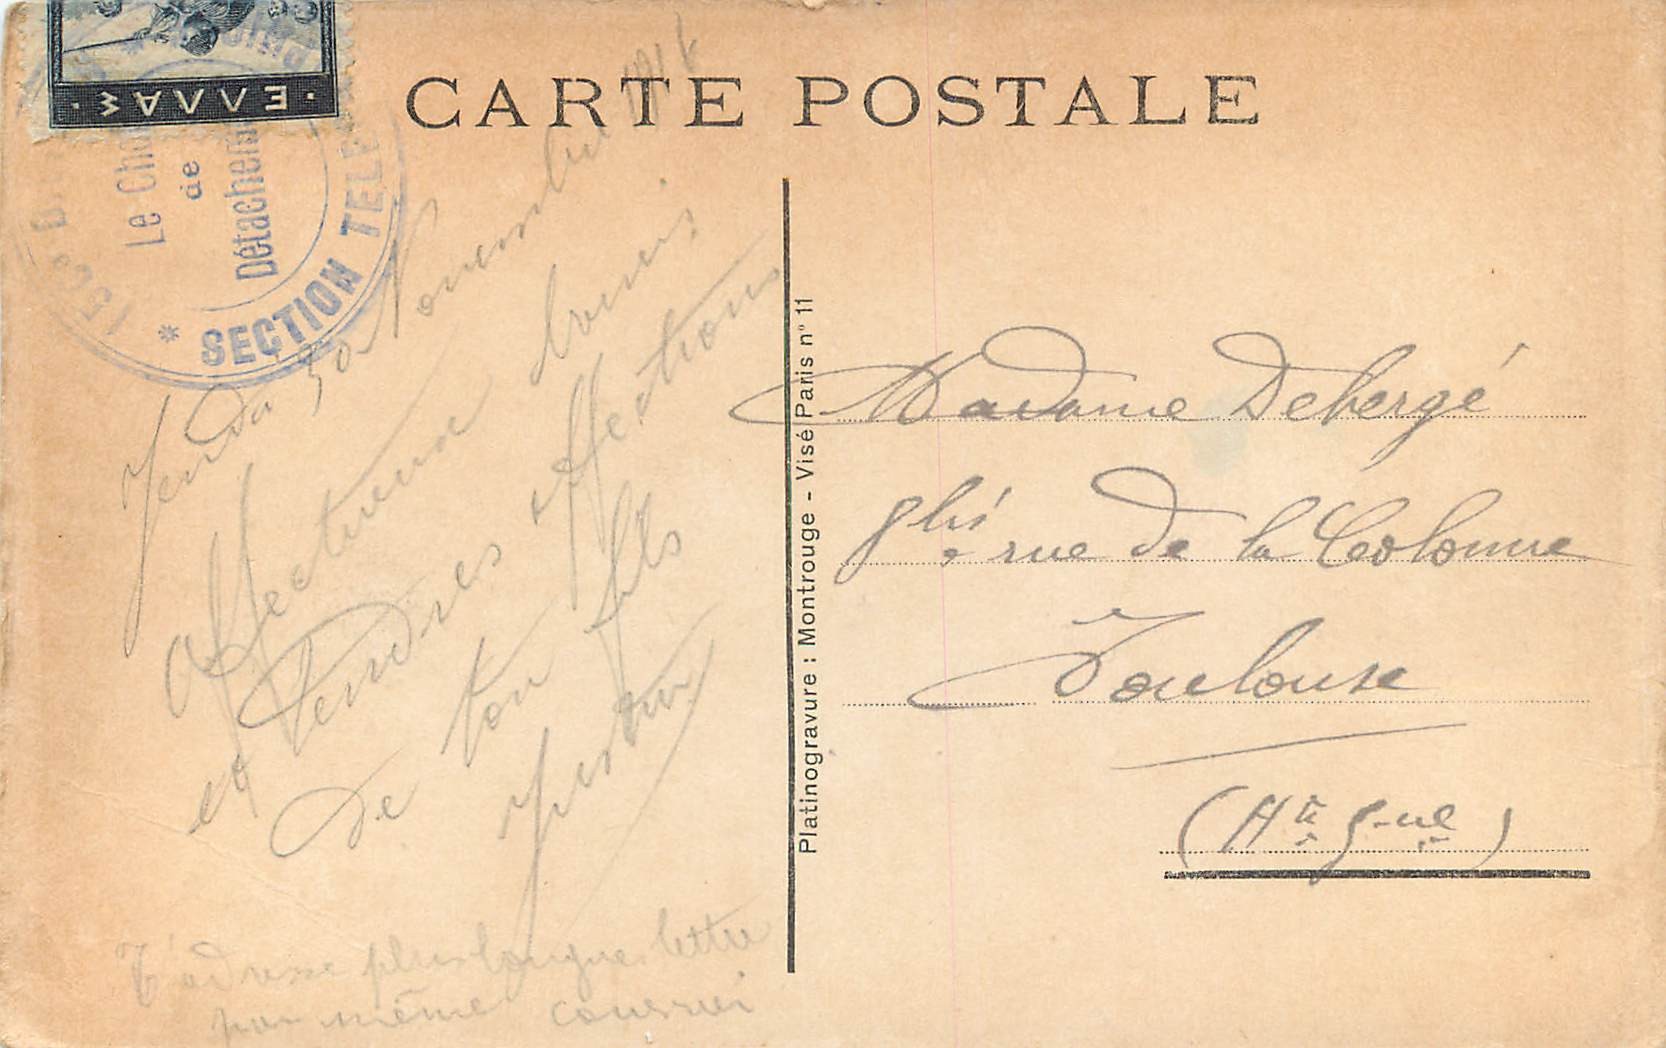 ΕΛΛΑΣ
CARTE POSTALE
156e
Le Che
de
Détachem
* SECTION TELE
30 Novembre 1916
Affectueux bonis
et tendres affections
de ton fils
Justin
T'adresse plus longue lettre
par même courrier
Platinogravure : Montrouge - Visé Paris n° 11
Madame Debergé
9 bis rue de la Colonne
Toulouse
(Hte G-ne)